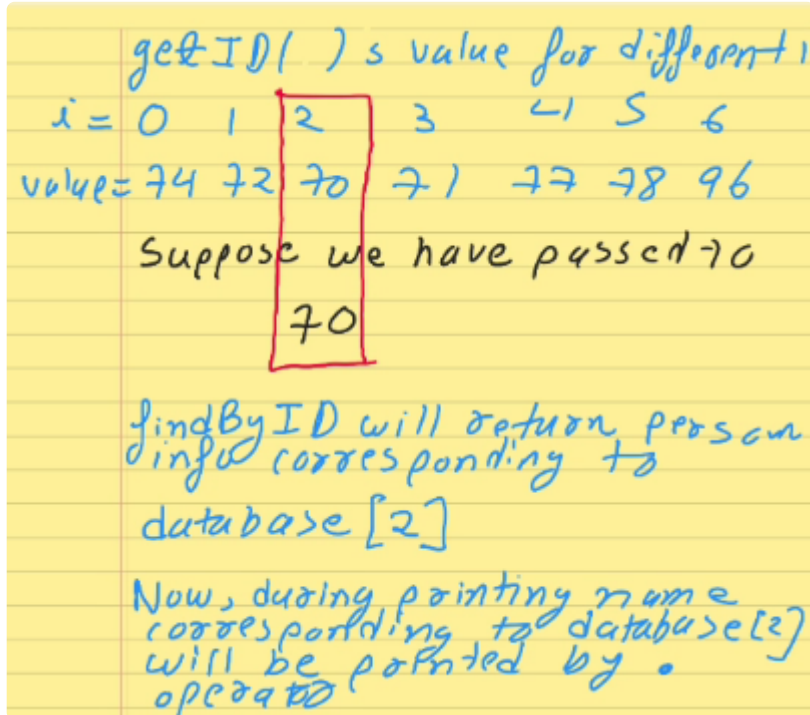 getID( ) s value for different i
i = 0 1 2 3 4 5 6
value = 74 72 70 71 77 78 96
Suppose we have passed 70
70
findByID will return person
info corresponding to
database [2]
Now, during printing name
corresponding to database[2]
will be printed by .
operator